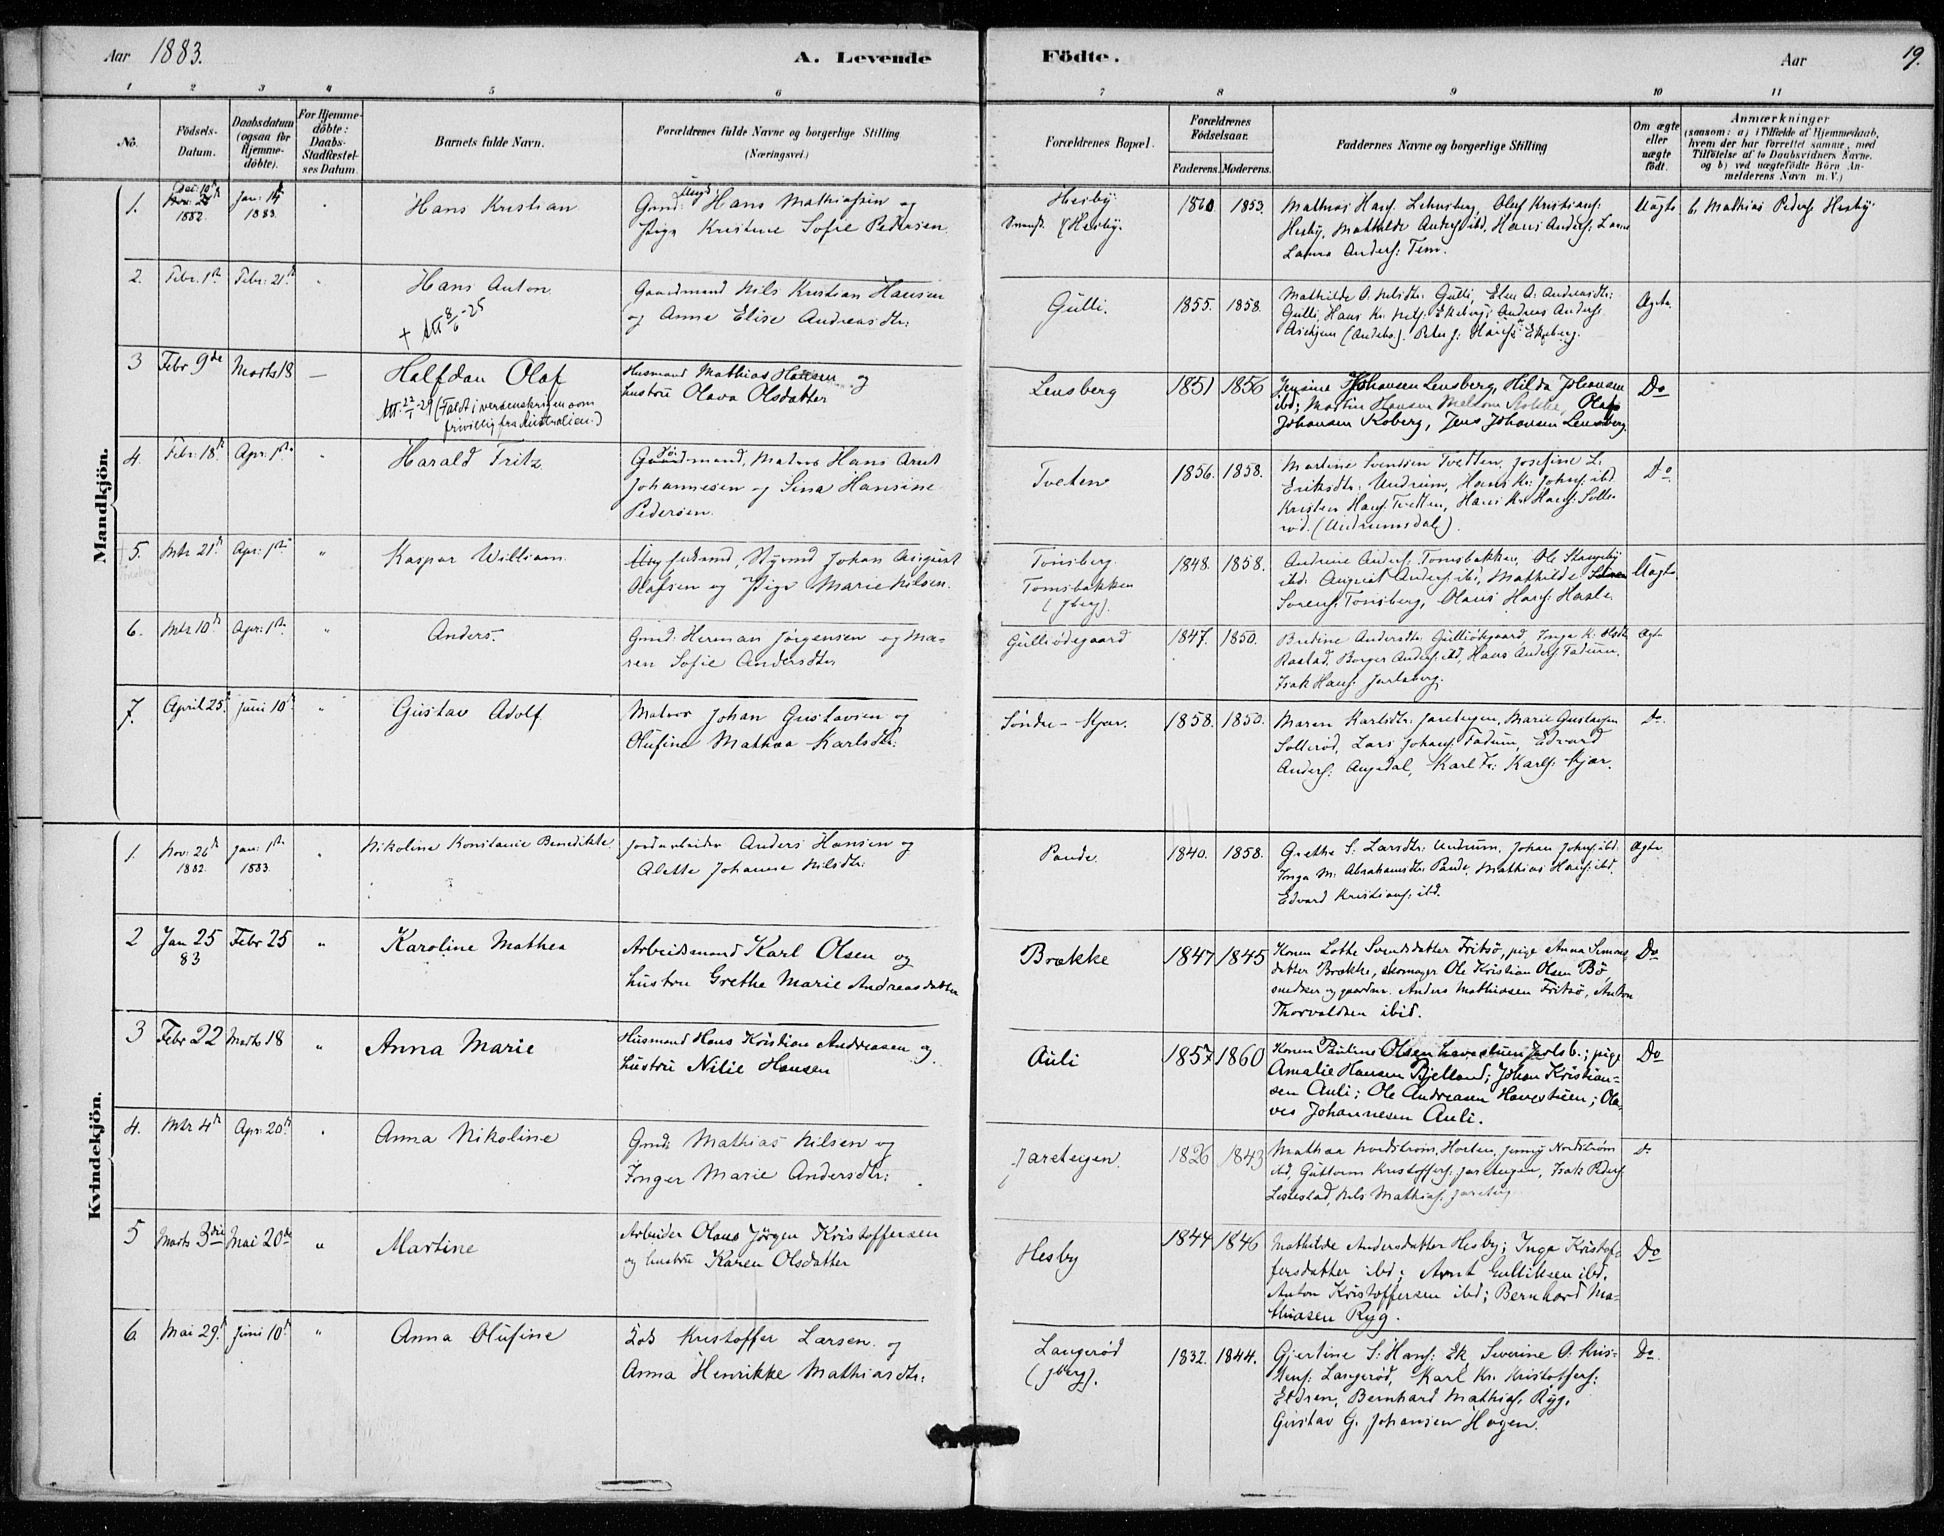 Aar 1883. A. Levende Födte. Aar 19.
1 2 3 4 5 6 7 8 9 10 11
No.
Födsels-
Datum.
Daabsdatum
(ogsaa for
Hjemme-
döbte).
For Hjemme-
döbte:
Daabs-
Stadfæstel-
ses Datum.
Barnets fulde Navn.
Forældrenes fulde Navne og borgerlige Stilling
(Næringsvei.)
Forældrenes Bopæl.
Forældrenes
Födselsaar.
Faderens. Moderens.
Faddernes Navne og borgerlige Stilling
Om ægte
eller
uægte
födt.
Anmærkninger
(saasom: a) i Tilfælde af Hjemmedaab,
hvem der har forrettet samme, med
Tilföielse af to Daabsvidners Navne,
og b) ved uægtefödte Börn An-
melderens Navn m. V.)
Mandkjön.
1.
1882.
Jan: 14
1883.
Hans Kristian
Ungk.
Gmd: Hans Mathiassen og
Pige Kristine Sofie Pedersen.
Hesby.
Hesby.
1860 1853.
Mathias Hans: Lensberg, Oluf Kristians:
Hesby, Mathilde Anders: ibd, Hans Anders:
Laura Anders: Tem.
Uægte
b. Mathias Peders: Hesby
2. Febr: 1st Febr: 21.
Hans Anton.
+ Att 8/6-25
Gaardmand Nils Kristian Hansen
og Anne Elise Andreasdtr:
Gulli.
1855. 1858.
Mathilde O. Nilsdtr: Gulli, Elen A. Andreasdtr:
Gulli, Hans Kr. Nils: Ekeberg, Andreas Anders:
Askjem (Andebo). Peter J. Hans: Ekeberg.
Ægte.
3 Febr 9de Marts 18 —
Halfdan Olaf
Att. 22/1-29 (Faldt i verdenskrigen som
frivillig fra Australien.)
Husmand Mathias Hansen og
hustru Olava Olsdatter
Lensberg
1851 1856
Jensine Johansen Lensberg, Hilda Johansen
ibd; Martin Hansen Mellom Stokke, Olaf
Johansen Roberg, Jens Johansen Lensberg.
Do
4. Febr: 18 Apr: 1st.
Harald Fritz.
mand, Matros Hans Arnt
Johannesen og Sina Hansine
Pedersen.
Tveten
1856. 1858.
Martine Svendsen Tvetten, Josefine L.
Eriksdtr: Undrum, Hans Kr. Johns: ibd.
Kristen Hans: Tvetten, Hans Kr. Hans: Solle-
rød. (Undrumsdal).
Do
5. Mts 21 Apr: 1st "
Kaspar William.
Styrmd Johan August
Olafsen og Pige Marie Nilsen.
Tönsberg.
Tomsbakken
(Jberg).
1848. 1858.
Andrine Anders: Tomsbakken, Ole Stangeby
ibd. August Anders: ibd, Mathilde
Sörens: Tonsberg, Olaus Hans: Hasle.
Uægte
6. Mts 10 Apr: 1st. "
Anders.
Gmd: Herman Jörgensen og Ma-
ren Sofie Andersdtr
Gulliödegaard
1847. 1850.
Bredine Andersdtr: Gulliödegaard, Inga K. Olsdtr
Raastad, Borger Anders: ibd, Hans Anders: Fadum,
Isak Hans: Jarlsberg.
Ægte
7. April 25 Juni 10 "
Gustav Adolf
Matros Johan Gustavsen og
Olufine Mathea Karlsdtr:
Söndre-Kjær.
1858. 1850.
Maren Karlsdtr: Jareteigen, Marie Gustavsen
Sollerød, Lars Johans: Fadum, Edvard
Anders: Augedal, Karl Fr. Karls: Kjær.
Do.
Kvindekjön.
1. Nov: 26
1882.
Jan: 1st
1883.
Nikoline Konstanse Benedikte.
Jordarbeider Anders Hansen og
Alette Johanne Nilsdtr:
Pande.
1840. 1858.
Grethe S. Larsdtr: Undrum, Johan Johns: ibd.
Inga M. Abrahamsdtr Pande, Mathias Hans: ibd.
Edvard Kristians: ibd.
Ægte
2 Jan 25
83
Febr 25 "
Karoline Mathea
Arbeidsmand Karl Olsen og
hustru Grethe Marie Andreasdatter
Brække
1847 1845
Konen Lotte Svendsdatter Fritsö, pige Anna Simons-
datter Brække, skomager Ole Kristian Olsen Bö,
snedker og gaardm. Anders Mathiasen Fritsö, Anton
Thorvaldsen ibid.
Do
3 Febr 22 Marts 18 "
Anna Marie
Husmand Hans Kristian Andreasen og
hustru Nilie Hansen
Auli
1857 1860
Konen Pauline Olsen Havestuen Jarlsb.; pige
Amalie Hansen Bjelland; Johan Kristian-
sen Auli; Ole Andreasen Havestuen; Ola-
ves Johannesen Auli.
Do
4. Mts 4 Apr: 20
Anna Nikoline
Gmd: Mathias Nilsen og
Inger Marie Andersdtr:
Jareteigen.
1826 1843
Mathea Nordström, Horten, Jenny Nordström
ibd, Guttorm Kristoffers: Jareteigen, Isak Peders:
Nils Mathias: Jareteig
Do
5 Marts 3die Mai 20de "
Martine
Arbeider Olaus Jörgen Kristoffersen
og hustru Karen Olsdatter
Hesby
1844 1846
Mathilde Andersdatter Hesby; Inga Kristof-
fersdatter ibd; Arnt Gulliksen ibd.
Anton Kristoffersen ibd; Bernhard Ma-
thiasen Ryg.
Do
6. Mai 29. Juni 10 "
Anna Olufine
Lods Kristoffer Larsen og
Anna Henrikke Mathiasdtr:
Langerød
(Jberg).
1832. 1844.
Gjertine S. Hans: Ek, Severine O. Kris-
tens: Langerød, Karl Kr. Kristoffers:
Eldren, Bernhard Mathias: Ryg,
Gustav G. Johansen Hagen.
Do.